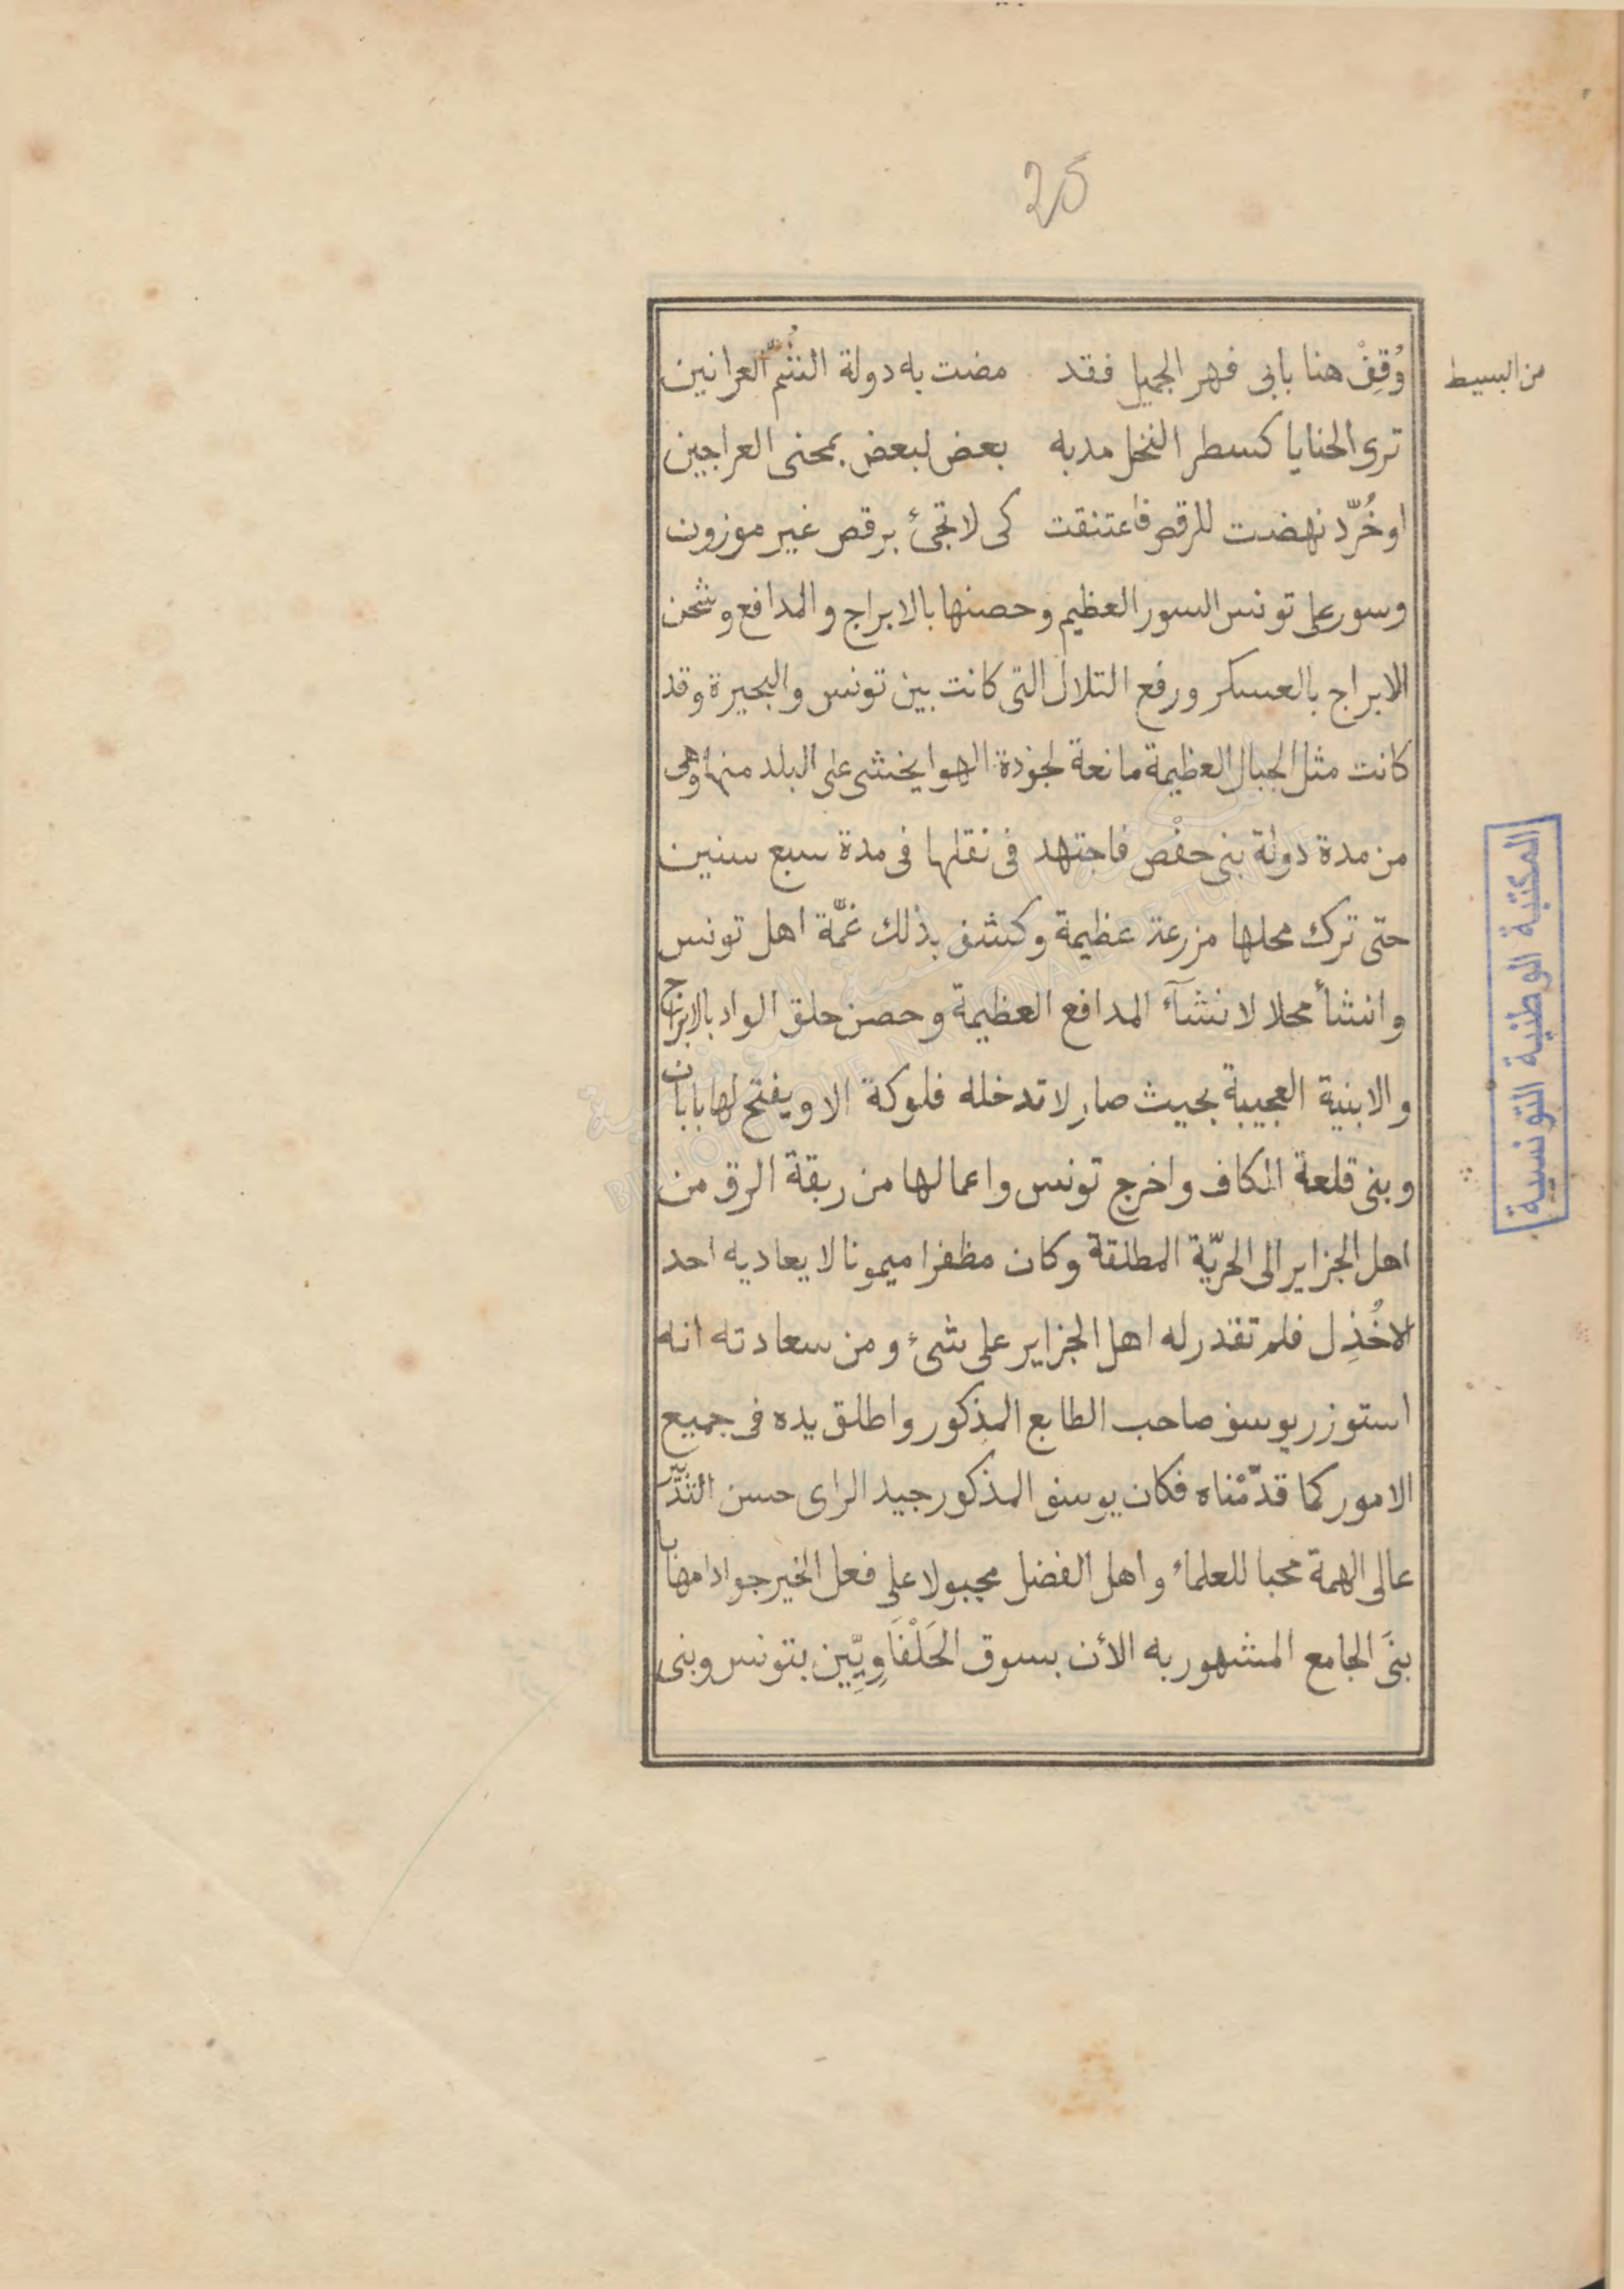 25
من البسيط
وُقِفْ هنا بابى فهر الجميل فقد مضت به دولة الشُّمّ العرانين
ترى الحنايا كسطر النخل مد به بعض لبعض بمحنى العراجين
او خُرّد نهضت للرقص فاعتنقت كى لا تجئ برقص غير موزون
وسور على تونس السور العظيم وحصنها بالابراج والمدافع وشحن
الابراج بالعسكر ورفع التلال التى كانت بين تونس والبحيرة وقد
كانت مثل الجبال العظيمة مانعة لجودة الهوا يخشى على البلد منها وهى
من مدة دولة بنى حفْص فاجتهد فى نقلها فى مدة سبع سنين
حتى ترك محلها مزرعة عظيمة وكشف بذلك غمّة اهل تونس
وانشأ محلا لانشآء المدافع العظيمة وحصن حلق الواد بالابراج
والابنية العجيبة بحيث صار لا تدخله فلوكة الا ويفتح لها بابان
وبنى قلعة الكاف واخرج تونس واعمالها من ربقة الرق من
اهل الجزاير الى الحرّية المطلقة وكان مظفرا ميمونا لا يعاديه احد
الا خُذِل فلم تقدر له اهل الجزاير على شئ ومن سعادته انه
استوزر يوسف صاحب الطابع المذكور واطلق يده فى جميع
الامور كما قدّمْناه فكان يوسف المذكور جيد الراى حسن التدبير
عالى الهمة محبا للعلماء واهل الفضل مجبولا على فعل الخير جوادا مهابا
بنَى الجامع المشهور به الأن بسوق الحَلْفَاوِيِّين بتونس وبنى
المكتبة الوطنية التونسية
BIBLIOTHEQUE NATIONALE DE TUNISIE